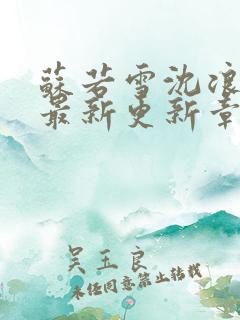 蘇若雪沈浪
最新更新章
吴玉良
未经同意禁止转载